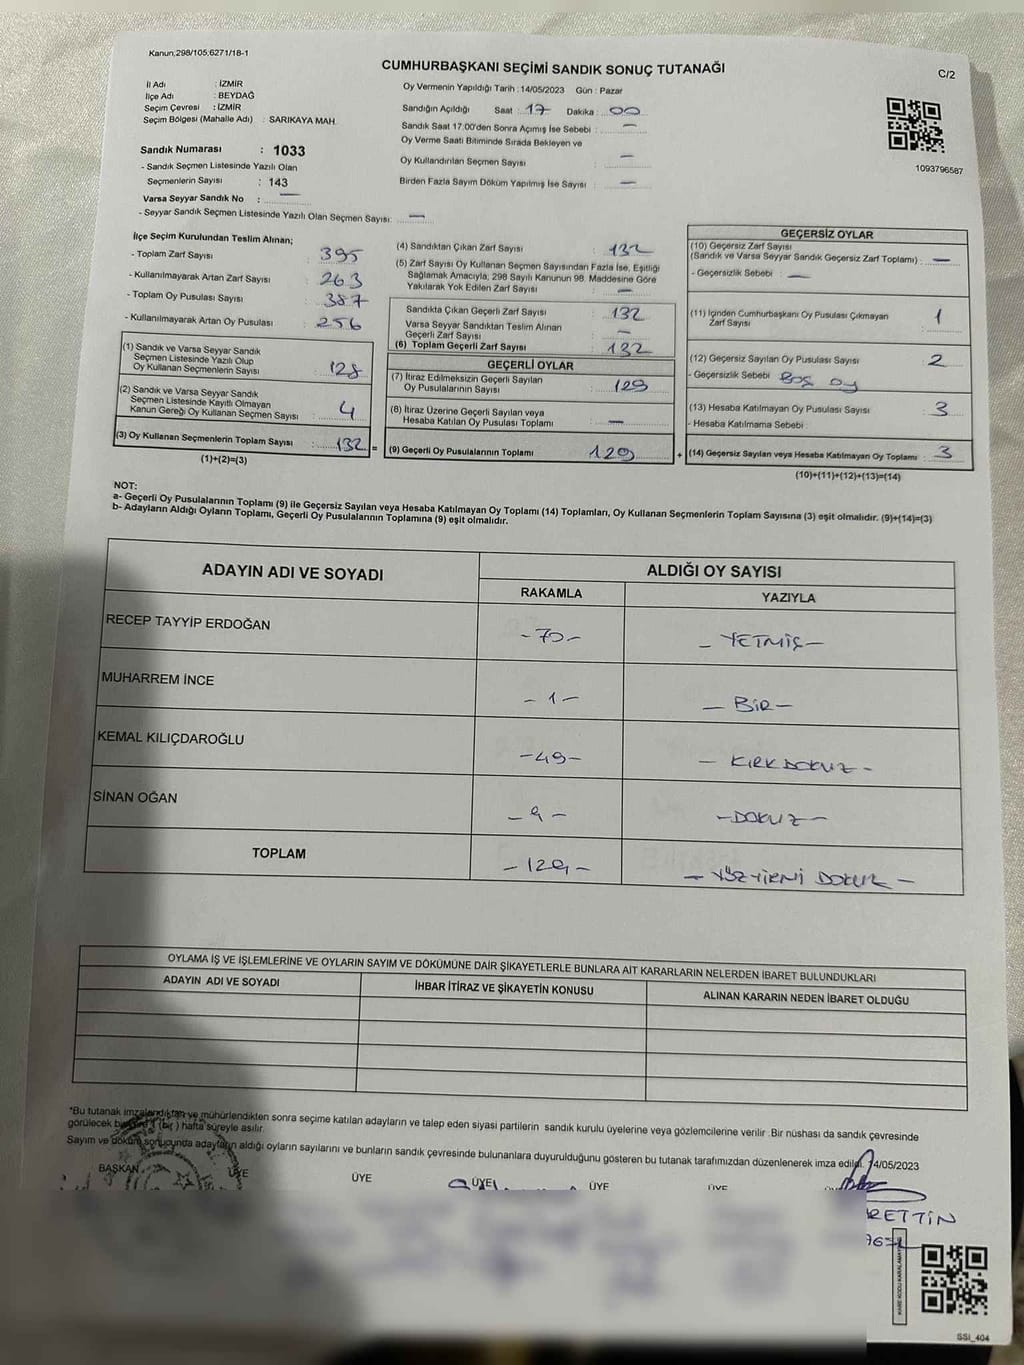 Kanun,298/105;6271/18-1
CUMHURBAŞKANI SEÇİMİ SANDIK SONUÇ TUTANAĞI
C/2
İl Adı : İZMİR
İlçe Adı : BEYDAĞ
Seçim Çevresi : İZMİR
Seçim Bölgesi (Mahalle Adı) : SARIKAYA MAH.
Oy Vermenin Yapıldığı Tarih : 14/05/2023 Gün : Pazar
Sandığın Açıldığı Saat : 17 Dakika : 00
Sandık Saat 17.00'den Sonra Açımış İse Sebebi : —
Oy Verme Saati Bitiminde Sırada Bekleyen ve
Oy Kullandırılan Seçmen Sayısı : —
Birden Fazla Sayım Döküm Yapılmış İse Sayısı : —
1093796587
Sandık Numarası : 1033
- Sandık Seçmen Listesinde Yazılı Olan
Seçmenlerin Sayısı : 143
Varsa Seyyar Sandık No : —
- Seyyar Sandık Seçmen Listesinde Yazılı Olan Seçmen Sayısı: —
İlçe Seçim Kurulundan Teslim Alınan;
- Toplam Zarf Sayısı : 395
- Kullanılmayarak Artan Zarf Sayısı : 263
- Toplam Oy Pusulası Sayısı : 387
- Kullanılmayarak Artan Oy Pusulası : 256
(1) Sandık ve Varsa Seyyar Sandık
Seçmen Listesinde Yazılı Olup
Oy Kullanan Seçmenlerin Sayısı : 128
(2) Sandık ve Varsa Seyyar Sandık
Seçmen Listesinde Kayıtlı Olmayan
Kanun Gereği Oy Kullanan Seçmen Sayısı : 4
(3) Oy Kullanan Seçmenlerin Toplam Sayısı : 132 =
(1)+(2)=(3)
(4) Sandıktan Çıkan Zarf Sayısı : 132
(5) Zarf Sayısı Oy Kullanan Seçmen Sayısından Fazla İse, Eşitliği
Sağlamak Amacıyla, 298 Sayılı Kanunun 98. Maddesine Göre
Yakılarak Yok Edilen Zarf Sayısı : —
Sandıkta Çıkan Geçerli Zarf Sayısı : 132
Varsa Seyyar Sandıktan Teslim Alınan
Geçerli Zarf Sayısı : —
(6) Toplam Geçerli Zarf Sayısı : 132
GEÇERLİ OYLAR
(7) İtiraz Edilmeksizin Geçerli Sayılan
Oy Pusulalarının Sayısı : 129
(8) İtiraz Üzerine Geçerli Sayılan veya
Hesaba Katılan Oy Pusulası Toplamı : —
(9) Geçerli Oy Pusulalarının Toplamı : 129 +
GEÇERSİZ OYLAR
(10) Geçersiz Zarf Sayısı
(Sandık ve Varsa Seyyar Sandık Geçersiz Zarf Toplamı) : —
- Geçersizlik Sebebi : —
(11) İçinden Cumhurbaşkanı Oy Pusulası Çıkmayan
Zarf Sayısı : 1
(12) Geçersiz Sayılan Oy Pusulası Sayısı : 2
- Geçersizlik Sebebi : Boş oy
(13) Hesaba Katılmayan Oy Pusulası Sayısı : 3
- Hesaba Katılmama Sebebi :
(14) Geçersiz Sayılan veya Hesaba Katılmayan Oy Toplamı : 3
(10)+(11)+(12)+(13)=(14)
NOT:
a- Geçerli Oy Pusulalarının Toplamı (9) ile Geçersiz Sayılan veya Hesaba Katılmayan Oy Toplamı (14) Toplamları, Oy Kullanan Seçmenlerin Toplam Sayısına (3) eşit olmalıdır. (9)+(14)=(3)
b- Adayların Aldığı Oyların Toplamı, Geçerli Oy Pusulalarının Toplamına (9) eşit olmalıdır.
ADAYIN ADI VE SOYADI ALDIĞI OY SAYISI
RAKAMLA YAZIYLA
RECEP TAYYİP ERDOĞAN -70- - YETMİŞ -
MUHARREM İNCE - 1 - - BİR -
KEMAL KILIÇDAROĞLU -49- - KIRKDOKUZ -
SİNAN OĞAN - 9 - - DOKUZ -
TOPLAM - 129 - - YÜZYİRMİ DOKUZ -
OYLAMA İŞ VE İŞLEMLERİNE VE OYLARIN SAYIM VE DÖKÜMÜNE DAİR ŞİKAYETLERLE BUNLARA AİT KARARLARIN NELERDEN İBARET BULUNDUKLARI
ADAYIN ADI VE SOYADI İHBAR İTİRAZ VE ŞİKAYETİN KONUSU ALINAN KARARIN NEDEN İBARET OLDUĞU
*Bu tutanak imzalandıktan ve mühürlendikten sonra seçime katılan adayların ve talep eden siyasi partilerin sandık kurulu üyelerine veya gözlemcilerine verilir .Bir nüshası da sandık çevresinde
görülecek bir yere 1 (bir ) hafta süreyle asılır.
Sayım ve döküm sonucunda adayların aldığı oyların sayılarını ve bunların sandık çevresinde bulunanlara duyurulduğunu gösteren bu tutanak tarafımızdan düzenlenerek imza edildi. 14/05/2023
BAŞKAN ÜYE ÜYE ÜYE ÜYE ÜYE
RETTİN
KARE KODU KARALAMAYINIZ
SSİ_404